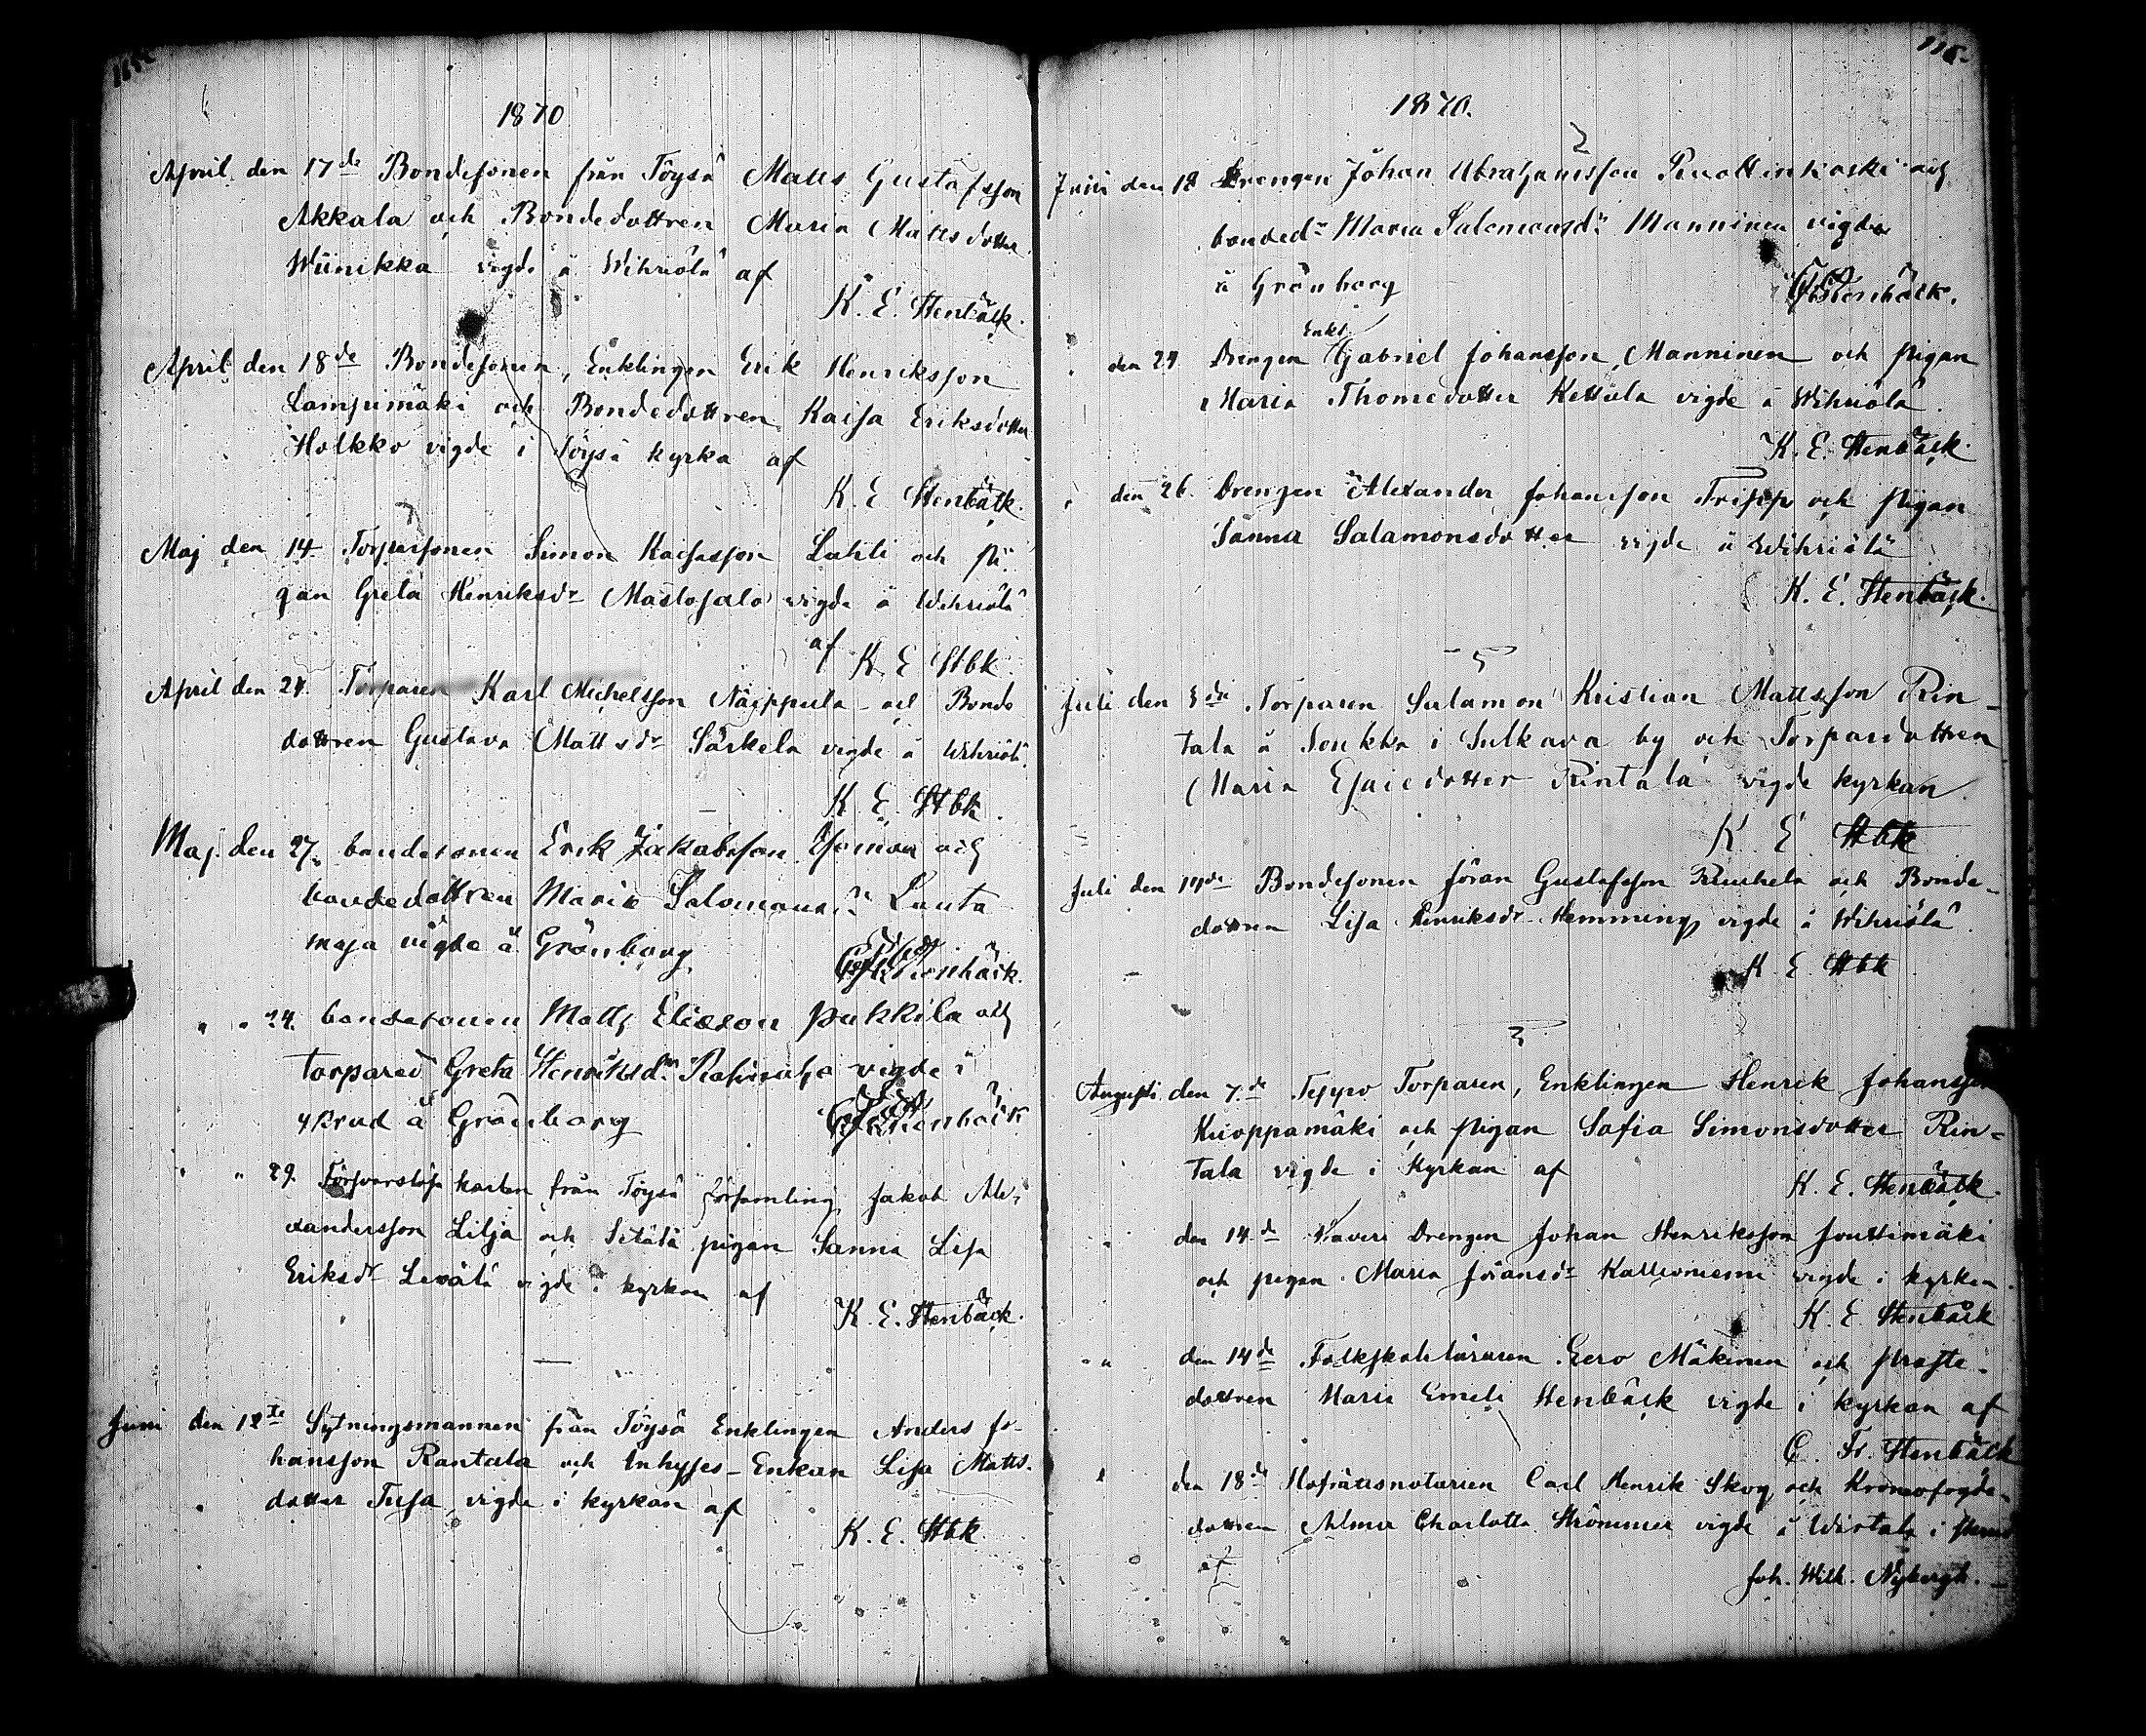 1870
April den 17de Bondesonen från Töysä Matts Gustafsson
Akkala och Bondedottren Maria Mattsdotter
Wiinikka vigde å Wihriälä af
K. E. Stenbäck.
April den 18de Bondesonen, Enklingen Erik Henriksson
Lampimäki och Bondedottren Kaisa Eriksdotter
Holkko vigde i Töysä kyrka af
K. E. Stenbäck.
Maj den 14 Torparsonen Simon Lahti och pi-
gan Greta Henriksdr Mastosalo vigde å Wihriälä
af K. E. Stbk.
April den 24. Torparen Karl Michelsson Näyppula och Bonde
dottren Gustava Mattsdr Särkelä vigde å Wihriälä.
K. E. Stbk.
Maj. den 27. bondesonen Erik Jakobsson och
bondedottren Maria Lauta
maja vigde å Grönborg
Stenbäck.
" " 24. bondesonen Matts Eliasson Pukkila och
torpared Greta Henriksdr vigde i
å Grönborg
Stenbäck
" " 29. Försvarslöse karlen från Töysä församling Jakob Ale-
xandersson Lilja och pigan Sanna Lisa
Eriksdr vigde i kyrkan af
K. E. Stenbäck.
Juni den 12te Sytningsmannen från Töysä Enklingen Anders Jo-
hansson Rantala och Inhyses-Enkan Lisa Matts-
dotter Tusa vigde i kyrkan af
K. E. Stbk
116.
1870.
Juni den 18 Drengen Johan Abrahamsson och
bonded:r Maria Salomonsdr Manninen vigde
å Grönborg
Stenbäck.
" den 24. Drengen Enkl. Gabriel Johansson Manninen och pigan
Maria Thomedotter Kettula vigde å Wihriälä.
K. E. Stenbäck.
" den 26. Drengen Alexander Johansson Tripp och pigan
Sanna Salamonsdotter vigde å Wihriälä
K. E. Stenbäck.
Juli den 3de Torparen Salamon Kristian Mattsson Rin-
tala å Soukka i Sulkava by och Torpardottren
Maria Esaiedotter Rintala vigde kyrkan
K. E. Stbk
Juli den 14de Bondesonen Jöran Gustafsson och Bonde-
dottren Lisa Henriksdr Hemming vigde å Wihriälä.
K. E. Stbk
Augusti den 7.de Teppo Torparen, Enklingen Henrik Johansson
Kuoppamäki och pigan Sofia Simonsdotter Rin-
tala vigde i Kyrkan af
K. E. Stenbäck.
" den 14.de Drengen Johan Henriksson Jouttimäki
och pigan Maria Jöransdr Kallioniemi vigde i kyrkan.
K. E. Stenbäck
" " den 14de Folkskoleläraren Eero Mäkinen och Proste-
dottren Maria Emeli Stenbäck vigde i kyrkan af
C. Fr. Stenbäck
" den 18de Hofrättsnotarien Carl Henrik Skog och Kronofogde-
dottren Alma Charlotta Strömmer vigde å
af
Joh. Wilh. Nybergh.